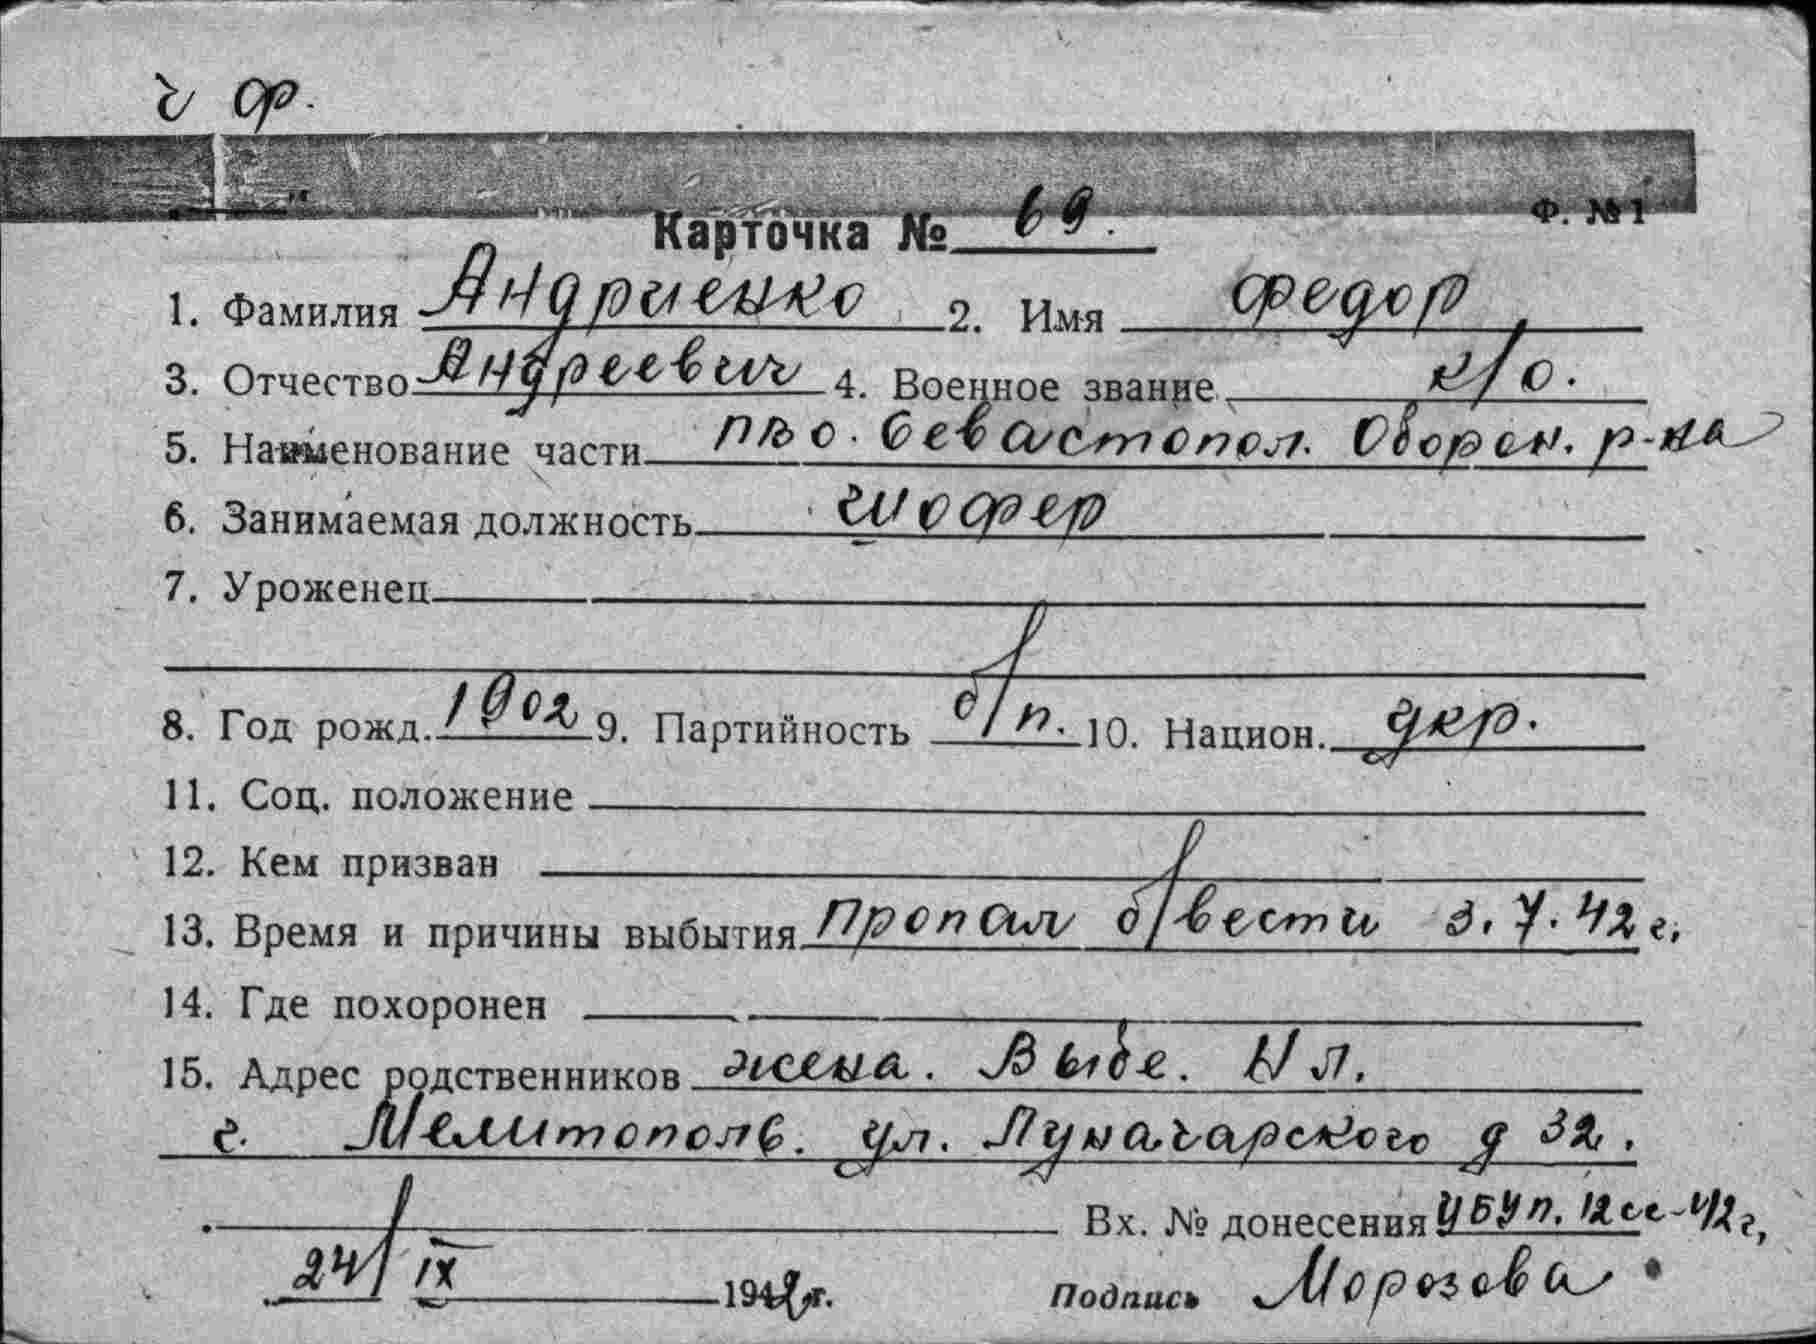 ч ф.
Ф. № 1
Карточка № 69.
1. Фамилия Андриенко 2. Имя Федор
3. Отчество Андреевич 4. Военное звание к/о.
5. Наименование части ПВО. Севастопол. Оборон. р-на
6. Занимаемая должность шофер
7. Уроженец
8. Год рожд. 1902 9. Партийность б/п. 10. Национ. укр.
11. Соц. положение
12. Кем призван
13. Время и причины выбытия Пропал б/вести 3.7.42 г.
14. Где похоронен
15. Адрес родственников жена. Выбе. Н Л.
г. Мелитополь. ул. Луначарского д 32.
Вх. № донесения УБУП. 12сс-42г,
24/IX 1942 г. Подпись Морозова